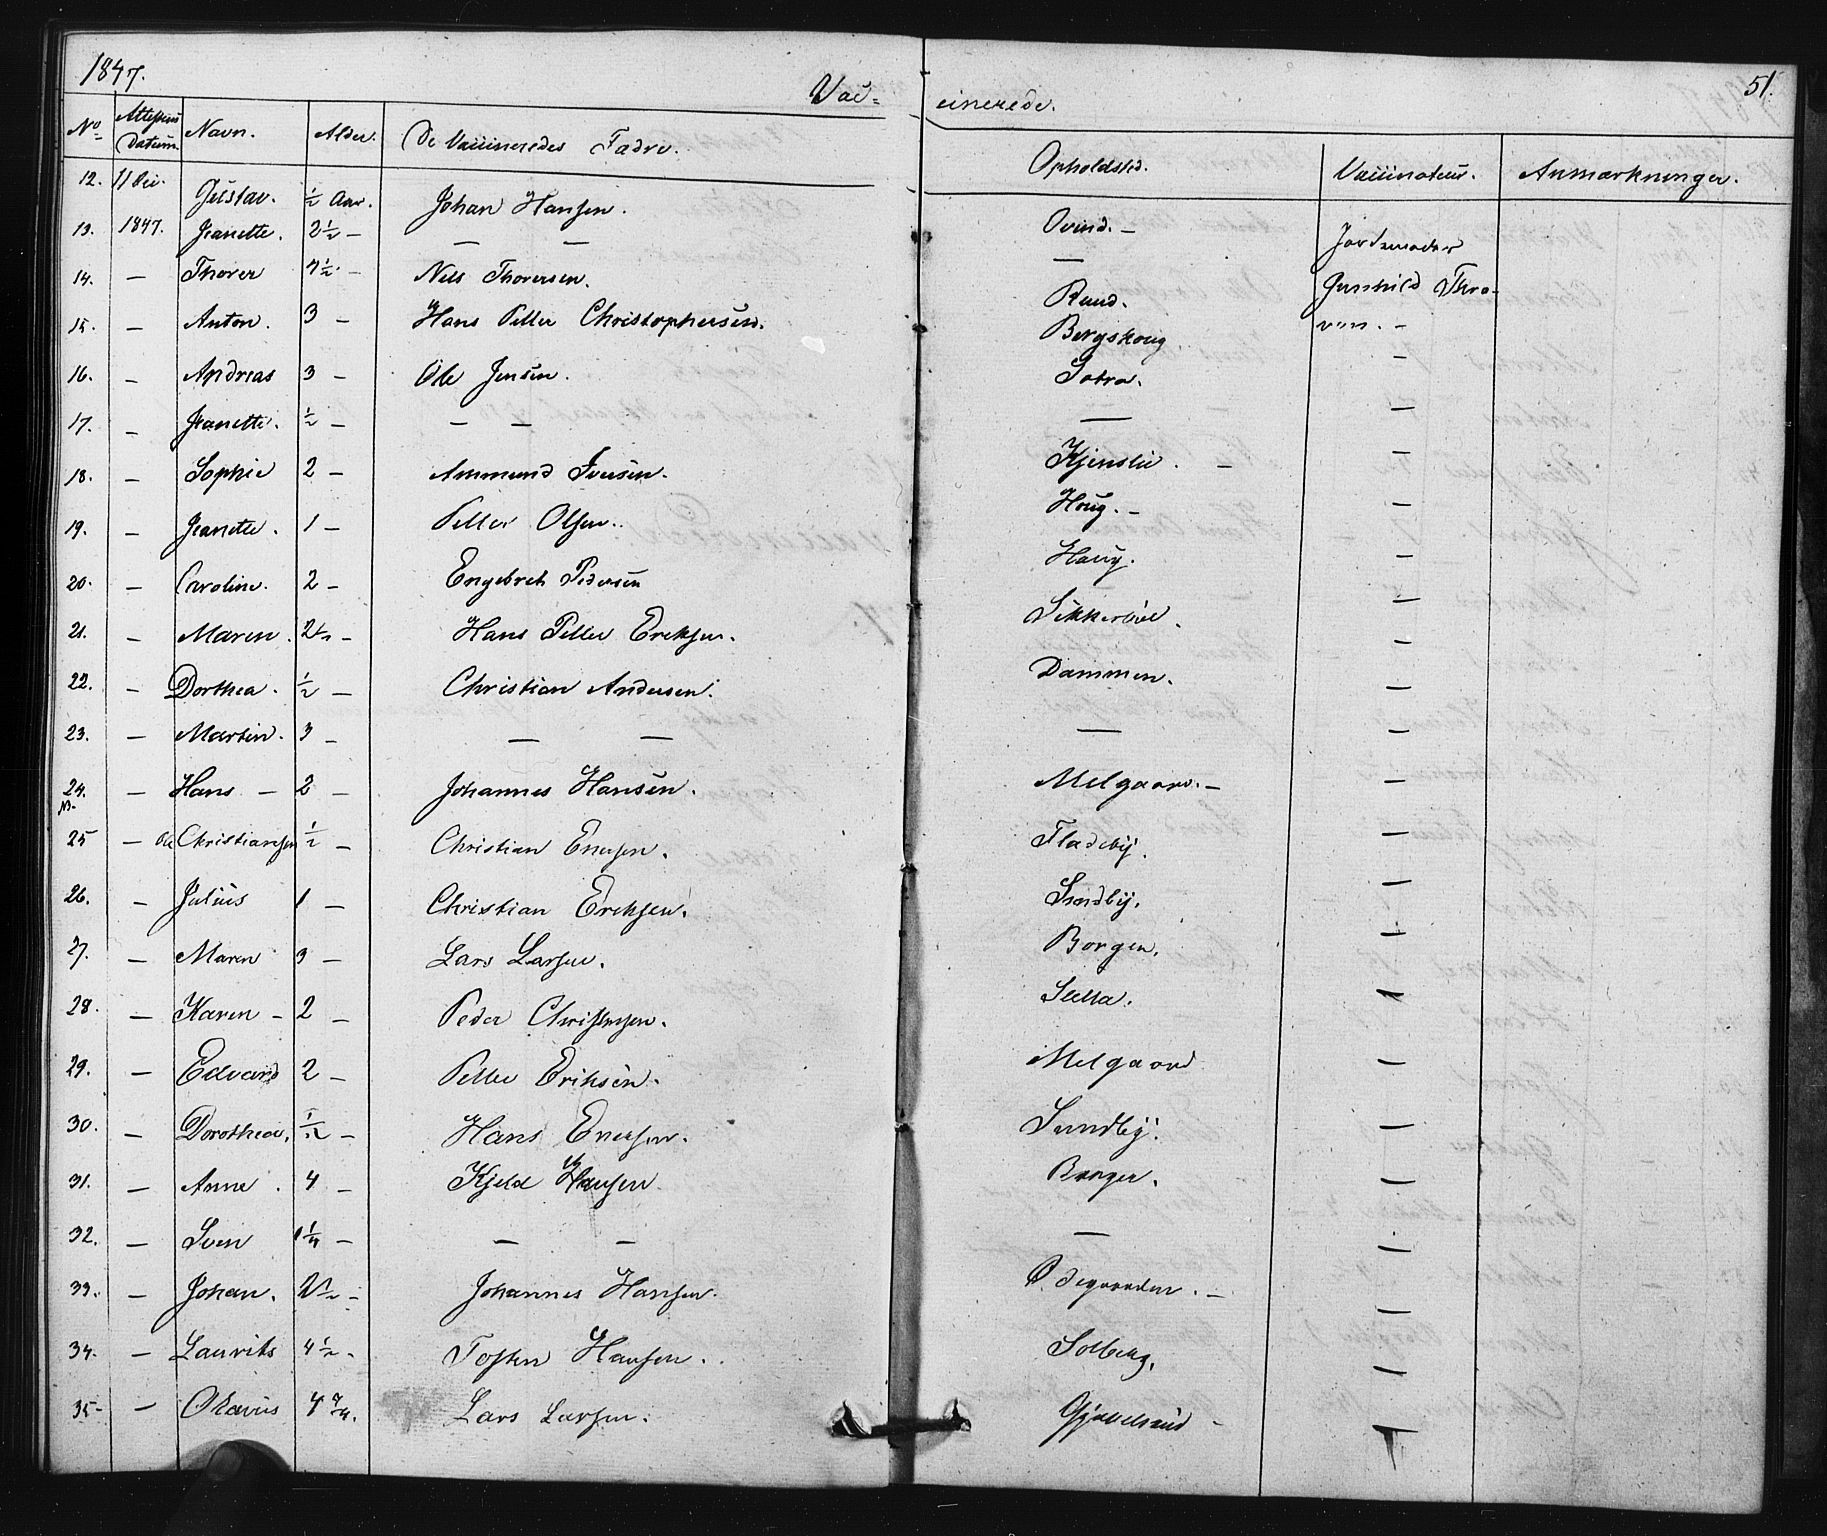 1847. Vac= cinerede. 51.
No Attestens Datum. Navn. Alder. De Vaccineredes Fædre. Opholdsted. Vaccinateur. Anmærkninger.
12. 11 Dec. Gustav. ½ Aar. Johan Hansen. Ovind. — Jordemoder
13. 1847. Jeanette. 2½ — — — — Gunhild Thro-
14. — Thorer 4½ — Nels Thoresen. Rund. ven. —
15. — Anton. 3 — Hans Petter Christophersen. Bergskoug —
16. — Andreas 3 — Ole Jensen. Sobra. —
17. — Jeanette. ½ — — — — —
18. — Sophie 2 — Ammund Iversen. Kjenslie. — —
19. — Jeanette. 1 — Petter Olsen. Houg. — —
20. — Caroline. 2 — Engebret Pedersen Haug. —
21. — Maren. 2½ — Hans Petter Eriksen. Sikkerbøl. —
22. — Dorthea. ½ — Christian Andersen. Dammen. —
23. — Martin. 3 — — — — —
24. — Hans — 2 — Johannes Hansen. Melgaard. — —
NB.
25 — Ole Christiansen ½ — Christian Enersen. Fladeby. —
26. — Julius 1 — Christian Eriksen. Sundby. —
27. — Maren 3 — Lars Larsen. Borgen. —
28. — Karen — 2 — Peder Christensen. Sletta. —
29. — Edvard 2 — Petter Eriksen. Melgaard —
30. — Dorothea. ½ — Hans Enersen. Sundby. —
31. — Anne. 4 — Kjeld Hansen Borger. —
32. — Sven 1¼ — — — — —
33. — Johan. 2½ — Johannes Hansen. Ødegaarden. — —
34. — Laurits 4½ — Tosten Hansen. Solberg. —
35 — — Olavus 4 ¾. Lars Larsen. Gjøvelsrud — —